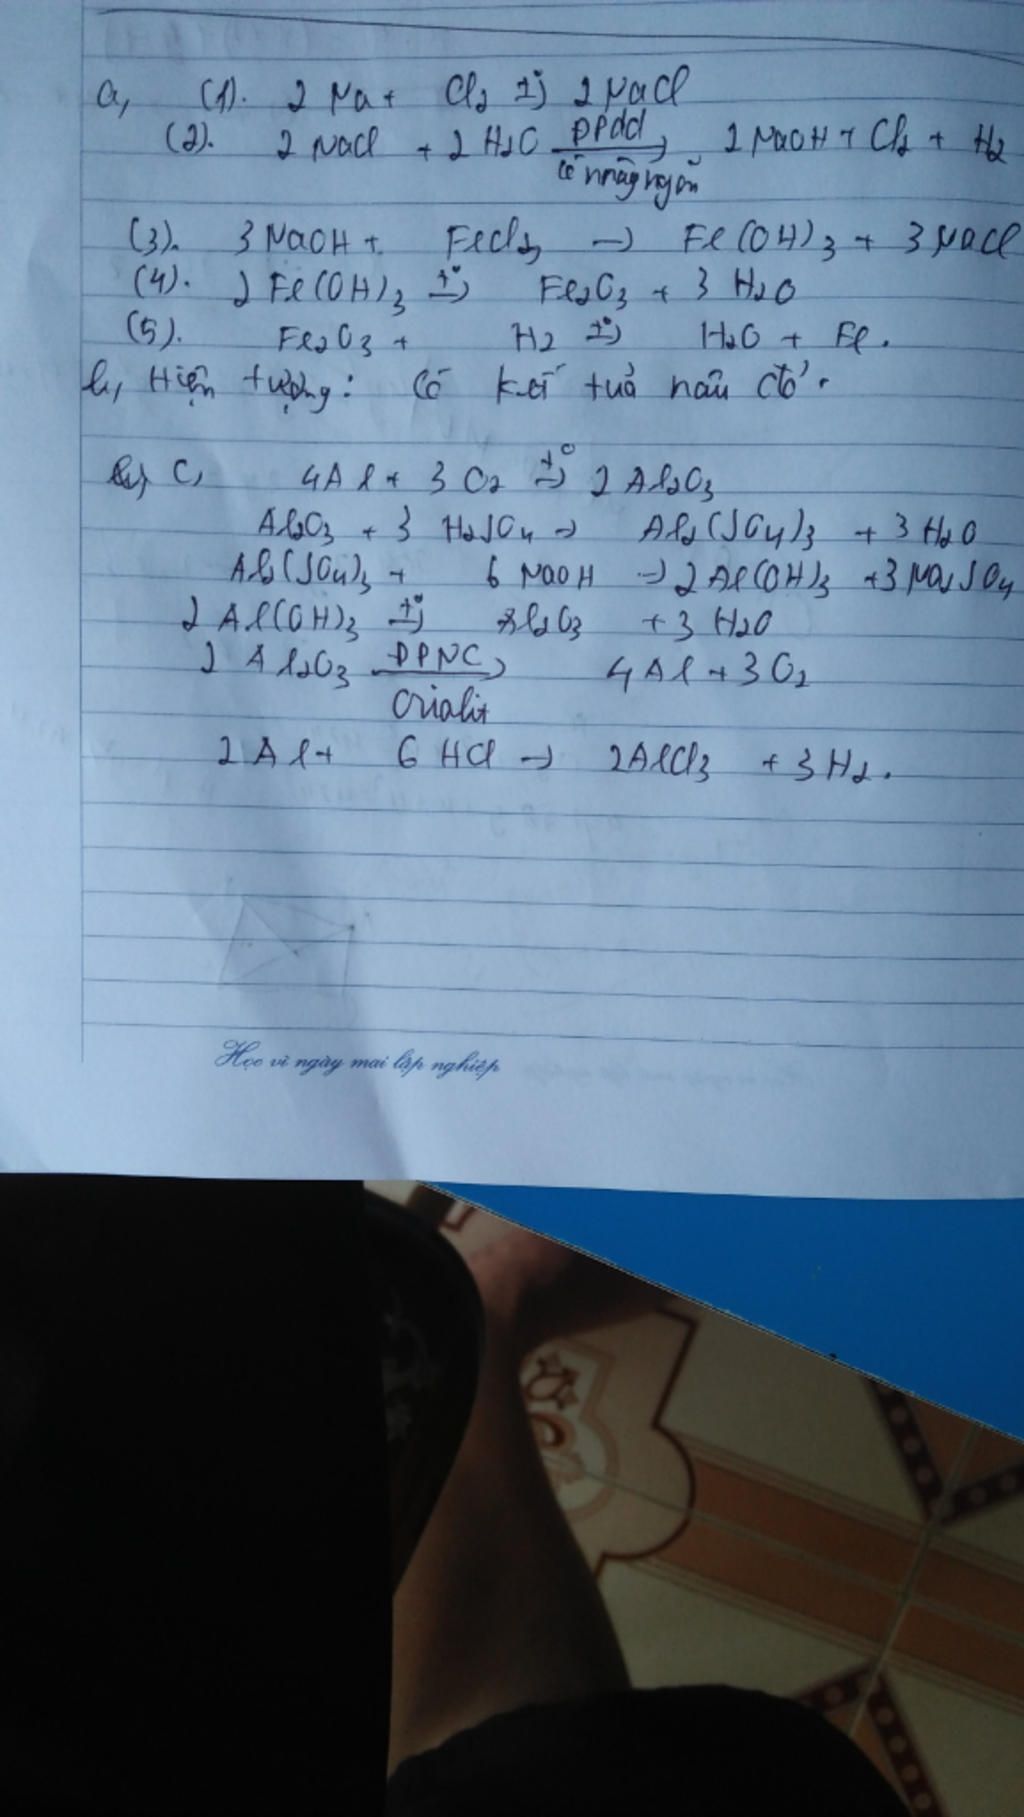 a, (1). 2 Na + Cl2 t°→ 2 NaCl
(2). 2 NaCl + 2 H2O đpdd→ 2 NaOH + Cl2 + H2
có màng ngăn
(3). 3 NaOH + FeCl3 → Fe(OH)3 + 3 NaCl
(4). 2 Fe(OH)3 t°→ Fe2O3 + 3 H2O
(5). Fe2O3 + H2 t°→ H2O + Fe.
b, Hiện tượng: Có kết tủa nâu đỏ.
c, 4Al + 3 O2 t°→ 2 Al2O3
Al2O3 + 3 H2SO4 → Al2(SO4)3 + 3 H2O
Al2(SO4)3 + 6 NaOH → 2 Al(OH)3 + 3 Na2SO4
2 Al(OH)3 t°→ Al2O3 + 3 H2O
2 Al2O3 ĐPNC→ 4Al + 3 O2
Crialit
2 Al + 6 HCl → 2AlCl3 + 3 H2.
Học vì ngày mai lập nghiệp